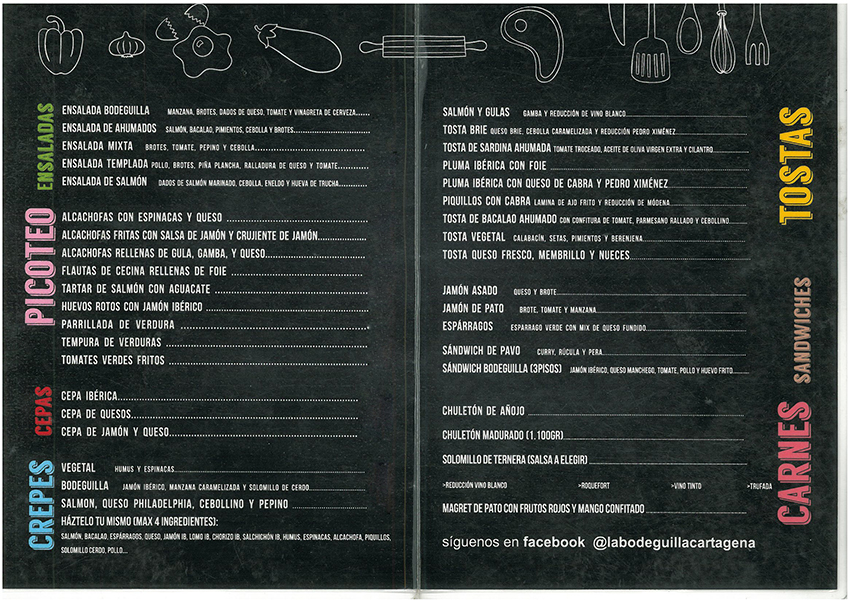 ENSALADAS
ENSALADA BODEGUILLA MANZANA, BROTES, DADOS DE QUESO, TOMATE Y VINAGRETA DE CERVEZA
ENSALADA DE AHUMADOS SALMÓN, BACALAO, PIMIENTOS, CEBOLLA Y BROTES
ENSALADA MIXTA BROTES, TOMATE, PEPINO Y CEBOLLA
ENSALADA TEMPLADA POLLO, BROTES, PIÑA PLANCHA, RALLADURA DE QUESO Y TOMATE
ENSALADA DE SALMÓN DADOS DE SALMÓN MARINADO, CEBOLLA, ENELDO Y HUEVA DE TRUCHA
PICOTEO
ALCACHOFAS CON ESPINACAS Y QUESO
ALCACHOFAS FRITAS CON SALSA DE JAMÓN Y CRUJIENTE DE JAMÓN
ALCACHOFAS RELLENAS DE GULA, GAMBA, Y QUESO
FLAUTAS DE CECINA RELLENAS DE FOIE
TARTAR DE SALMÓN CON AGUACATE
HUEVOS ROTOS CON JAMÓN IBÉRICO
PARRILLADA DE VERDURA
TEMPURA DE VERDURAS
TOMATES VERDES FRITOS
CEPAS
CEPA IBÉRICA
CEPA DE QUESOS
CEPA DE JAMÓN Y QUESO
CREPES
VEGETAL HUMUS Y ESPINACAS
BODEGUILLA JAMÓN IBÉRICO, MANZANA CARAMELIZADA Y SOLOMILLO DE CERDO
SALMON, QUESO PHILADELPHIA, CEBOLLINO Y PEPINO
HÁZTELO TU MISMO (MAX 4 INGREDIENTES):
SALMÓN, BACALAO, ESPÁRRAGOS, QUESO, JAMÓN IB, LOMO IB, CHORIZO IB, SALCHICHÓN IB, HUMUS, ESPINACAS, ALCACHOFA, PIQUILLOS,
SOLOMILLO CERDO, POLLO...
TOSTAS
SALMÓN Y GULAS GAMBA Y REDUCCIÓN DE VINO BLANCO
TOSTA BRIE QUESO BRIE, CEBOLLA CARAMELIZADA Y REDUCCIÓN PEDRO XIMÉNEZ
TOSTA DE SARDINA AHUMADA TOMATE TROCEADO, ACEITE DE OLIVA VIRGEN EXTRA Y CILANTRO
PLUMA IBÉRICA CON FOIE
PLUMA IBÉRICA CON QUESO DE CABRA Y PEDRO XIMÉNEZ
PIQUILLOS CON CABRA LAMINA DE AJO FRITO Y REDUCCIÓN DE MÓDENA
TOSTA DE BACALAO AHUMADO CON CONFITURA DE TOMATE, PARMESANO RALLADO Y CEBOLLINO
TOSTA VEGETAL CALABACÍN, SETAS, PIMIENTOS Y BERENJENA
TOSTA QUESO FRESCO, MEMBRILLO Y NUECES
SANDWICHES
JAMÓN ASADO QUESO Y BROTE
JAMÓN DE PATO BROTE, TOMATE Y MANZANA
ESPÁRRAGOS ESPARRAGO VERDE CON MIX DE QUESO FUNDIDO
SÁNDWICH DE PAVO CURRY, RÚCULA Y PERA
SÁNDWICH BODEGUILLA (3PISOS) JAMÓN IBÉRICO, QUESO MANCHEGO, TOMATE, POLLO Y HUEVO FRITO
CARNES
CHULETÓN DE AÑOJO
CHULETÓN MADURADO (1.100GR)
SOLOMILLO DE TERNERA (SALSA A ELEGIR)
>REDUCCIÓN VINO BLANCO >ROQUEFORT >VINO TINTO >TRUFADA
MAGRET DE PATO CON FRUTOS ROJOS Y MANGO CONFITADO
síguenos en facebook @labodeguillacartagena